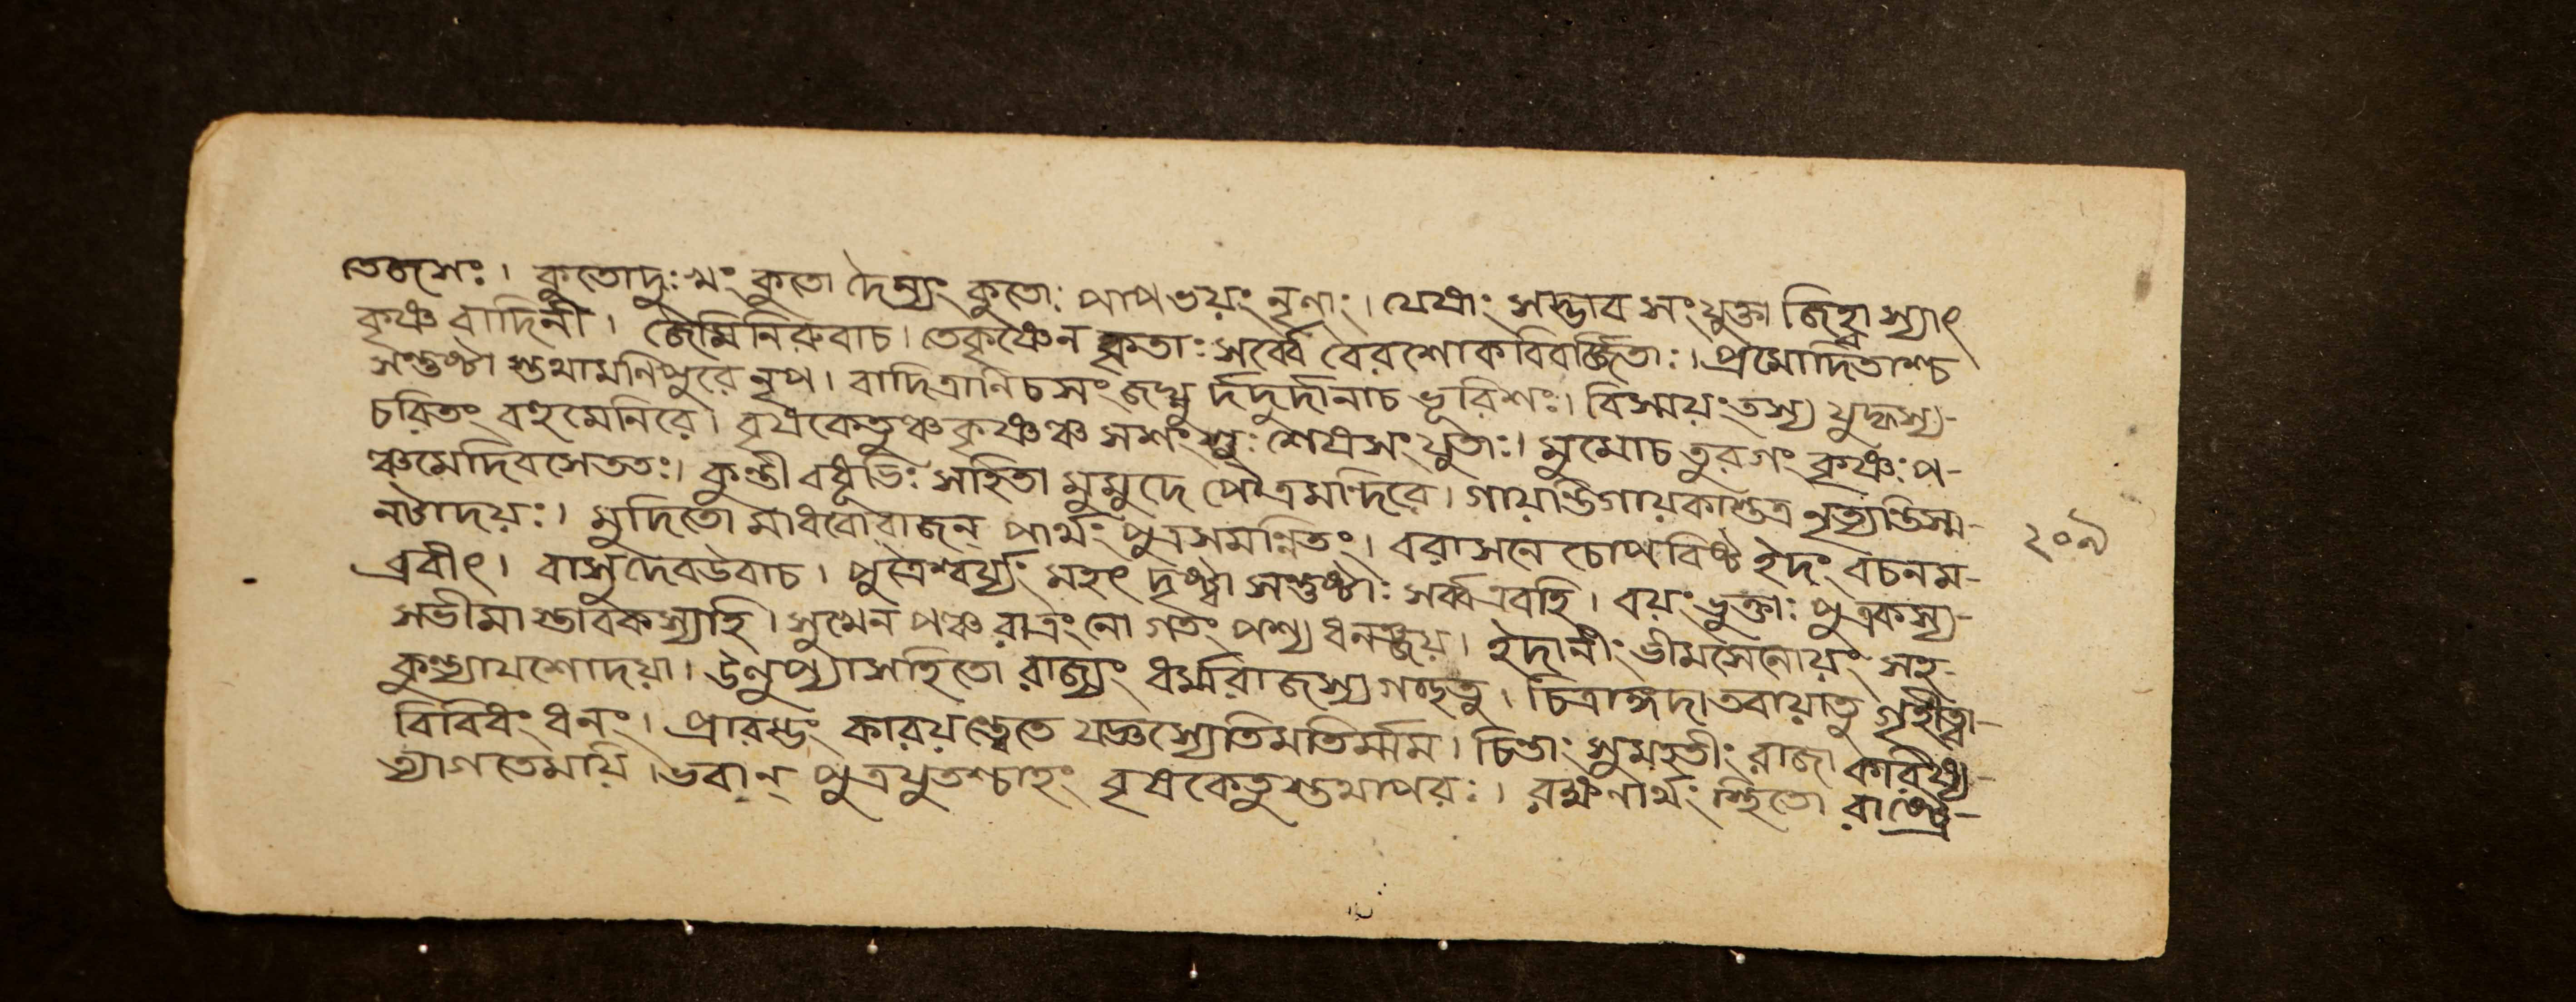 তেজসঃ। কুতোদুঃখং কুতো দৈন্যং কুতোঃ পাপভয়ং নৃণাং। যেষাং সদ্ভাবসংযুক্তা জিহ্বাস্যাৎ
কৃষ্ণবাদিনী। জৈমিনিরুবাচ। তেকৃষ্ণেন কৃতাঃ সর্ব্বে বৈরশোকবিবর্জ্জিতাঃ। প্রমোদিতাশ্চ
সন্তুষ্টা স্তথামনিপুরে নৃপ। বাদিত্রানিচসংজঘ্নু র্দদুর্দানাচ ভূরিশঃ। বিস্ময়ংতস্য যুদ্ধস্য-
চরিতং বহুমেনিরে। বৃষকেতুঞ্চকৃষ্ণঞ্চ সশংসুঃ শেষসংযুতাঃ। মুমোচ তুরগং কৃষ্ণঃ প-
ঞ্চমেদিবসেততঃ। কুন্তী বধূভিঃ সহিতা মুমুদে পৌত্রমন্দিরে। গায়ন্তিগায়কাস্তত্র নৃত্যন্তিস্ম-
নটাদয়ঃ। মুদিতো মাধবোরাজন্ পার্থং পুত্রসমন্বিতং। বরাসনে চোপবিষ্ট ইদং বচনম-
ব্রবীৎ। বাসুদেবউবাচ। পুত্রৈশ্বর্য্যং মহৎ দৃষ্ট্বা সন্তুষ্টাঃ সর্ব্বএবহি। বয়ং ভুক্তাঃ পুত্রকস্য-
সভীমা স্তাবকস্যাহি। সুখেন পঞ্চরাত্রং নো গতং পশ্য ধনঞ্জয়। ইদানীং ভীমসেনোয়ং সহ-
কুন্ত্যাযশোদয়া। উলুপ্যাসহিতো রাজ্যং ধর্ম্মরাজস্যগচ্ছতু। চিত্রাঙ্গদাতবায়াতু গৃহীত্বা-
বিবিধং ধনং। প্রারম্ভং কারয়ন্ত্বেতে যজ্ঞস্যেতিমতির্ম্মম। চিন্তাং সুমহতীং রাজা করিষ্য-
ত্যাগতেময়ি। ভবান্ পুত্রযুতশ্চাহং বৃষকেতুস্তথাপরঃ। রক্ষণার্থং স্থিতো রাষ্ট্রে-
২০৯